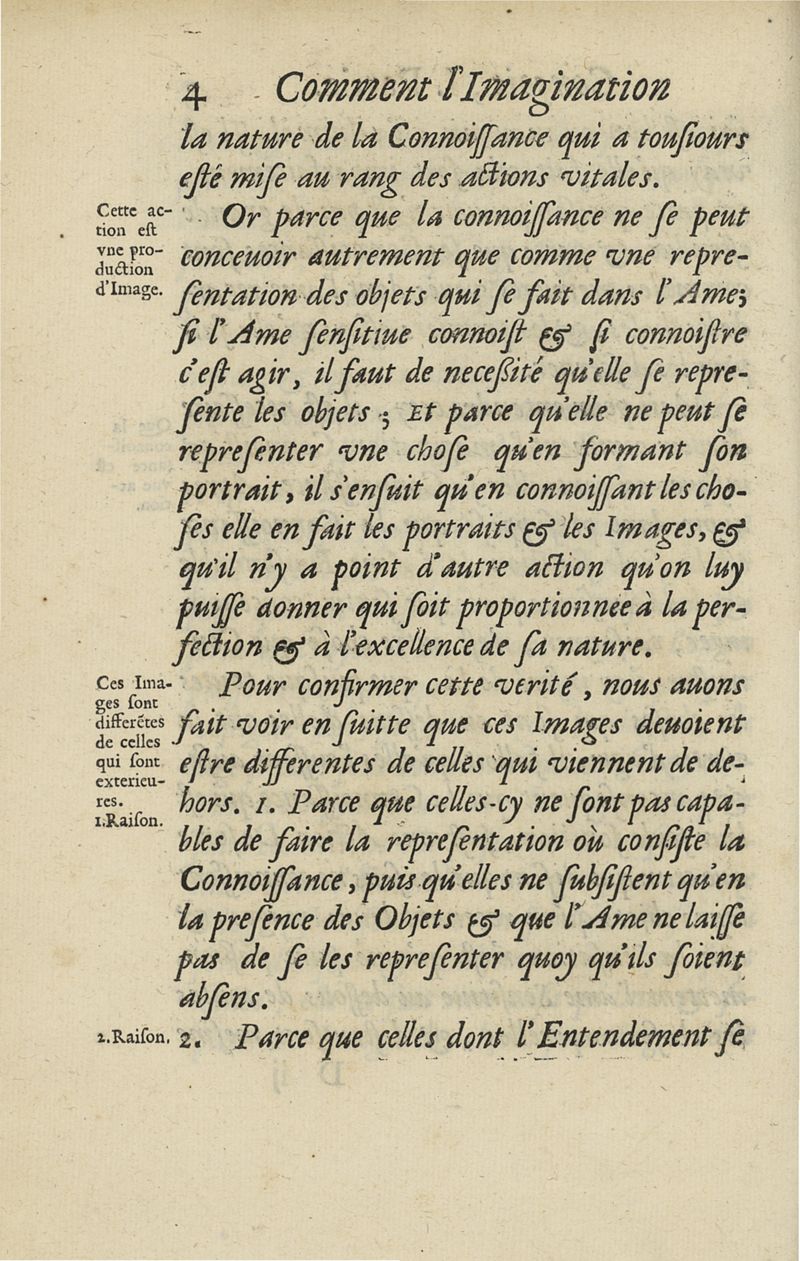 4 Comment l'Imagination
la nature de la Connoiſſance qui a touſiours
eſté miſe au rang des actions vitales.
Cette ac-
tion eſt
vne pro-
duction
d'Image.
Or parce que la connoiſſance ne ſe peut
conceuoir autrement que comme vne repre-
ſentation des objets qui ſe fait dans l'Ame;
ſi l'Ame ſenſitiue connoiſt & ſi connoiſtre
c'eſt agir, il faut de neceſſité qu'elle ſe repre-
ſente les objets ; Et parce qu'elle ne peut ſe
repreſenter vne choſe qu'en formant ſon
portrait, il s'enſuit qu'en connoiſſant les cho-
ſes elle en fait les portraits & les Images, &
qu'il n'y a point d'autre action qu'on luy
puiſſe donner qui ſoit proportionnee à la per-
fection & à l'excellence de ſa nature.
Ces Ima-
ges ſont
differẽtes
de celles
qui ſont
exterieu-
res.
1.Raiſon.
Pour confirmer cette verité, nous auons
fait voir en ſuitte que ces Images deuoient
eſtre differentes de celles qui viennent de de-
hors. 1. Parce que celles-cy ne ſont pas capa-
bles de faire la repreſentation où conſiſte la
Connoiſſance, puis qu'elles ne ſubſiſtent qu'en
la preſence des Objets & que l'Ame ne laiſſe
pas de ſe les repreſenter quoy qu'ils ſoient
abſens.
2.Raiſon.
2. Parce que celles dont l'Entendement ſe